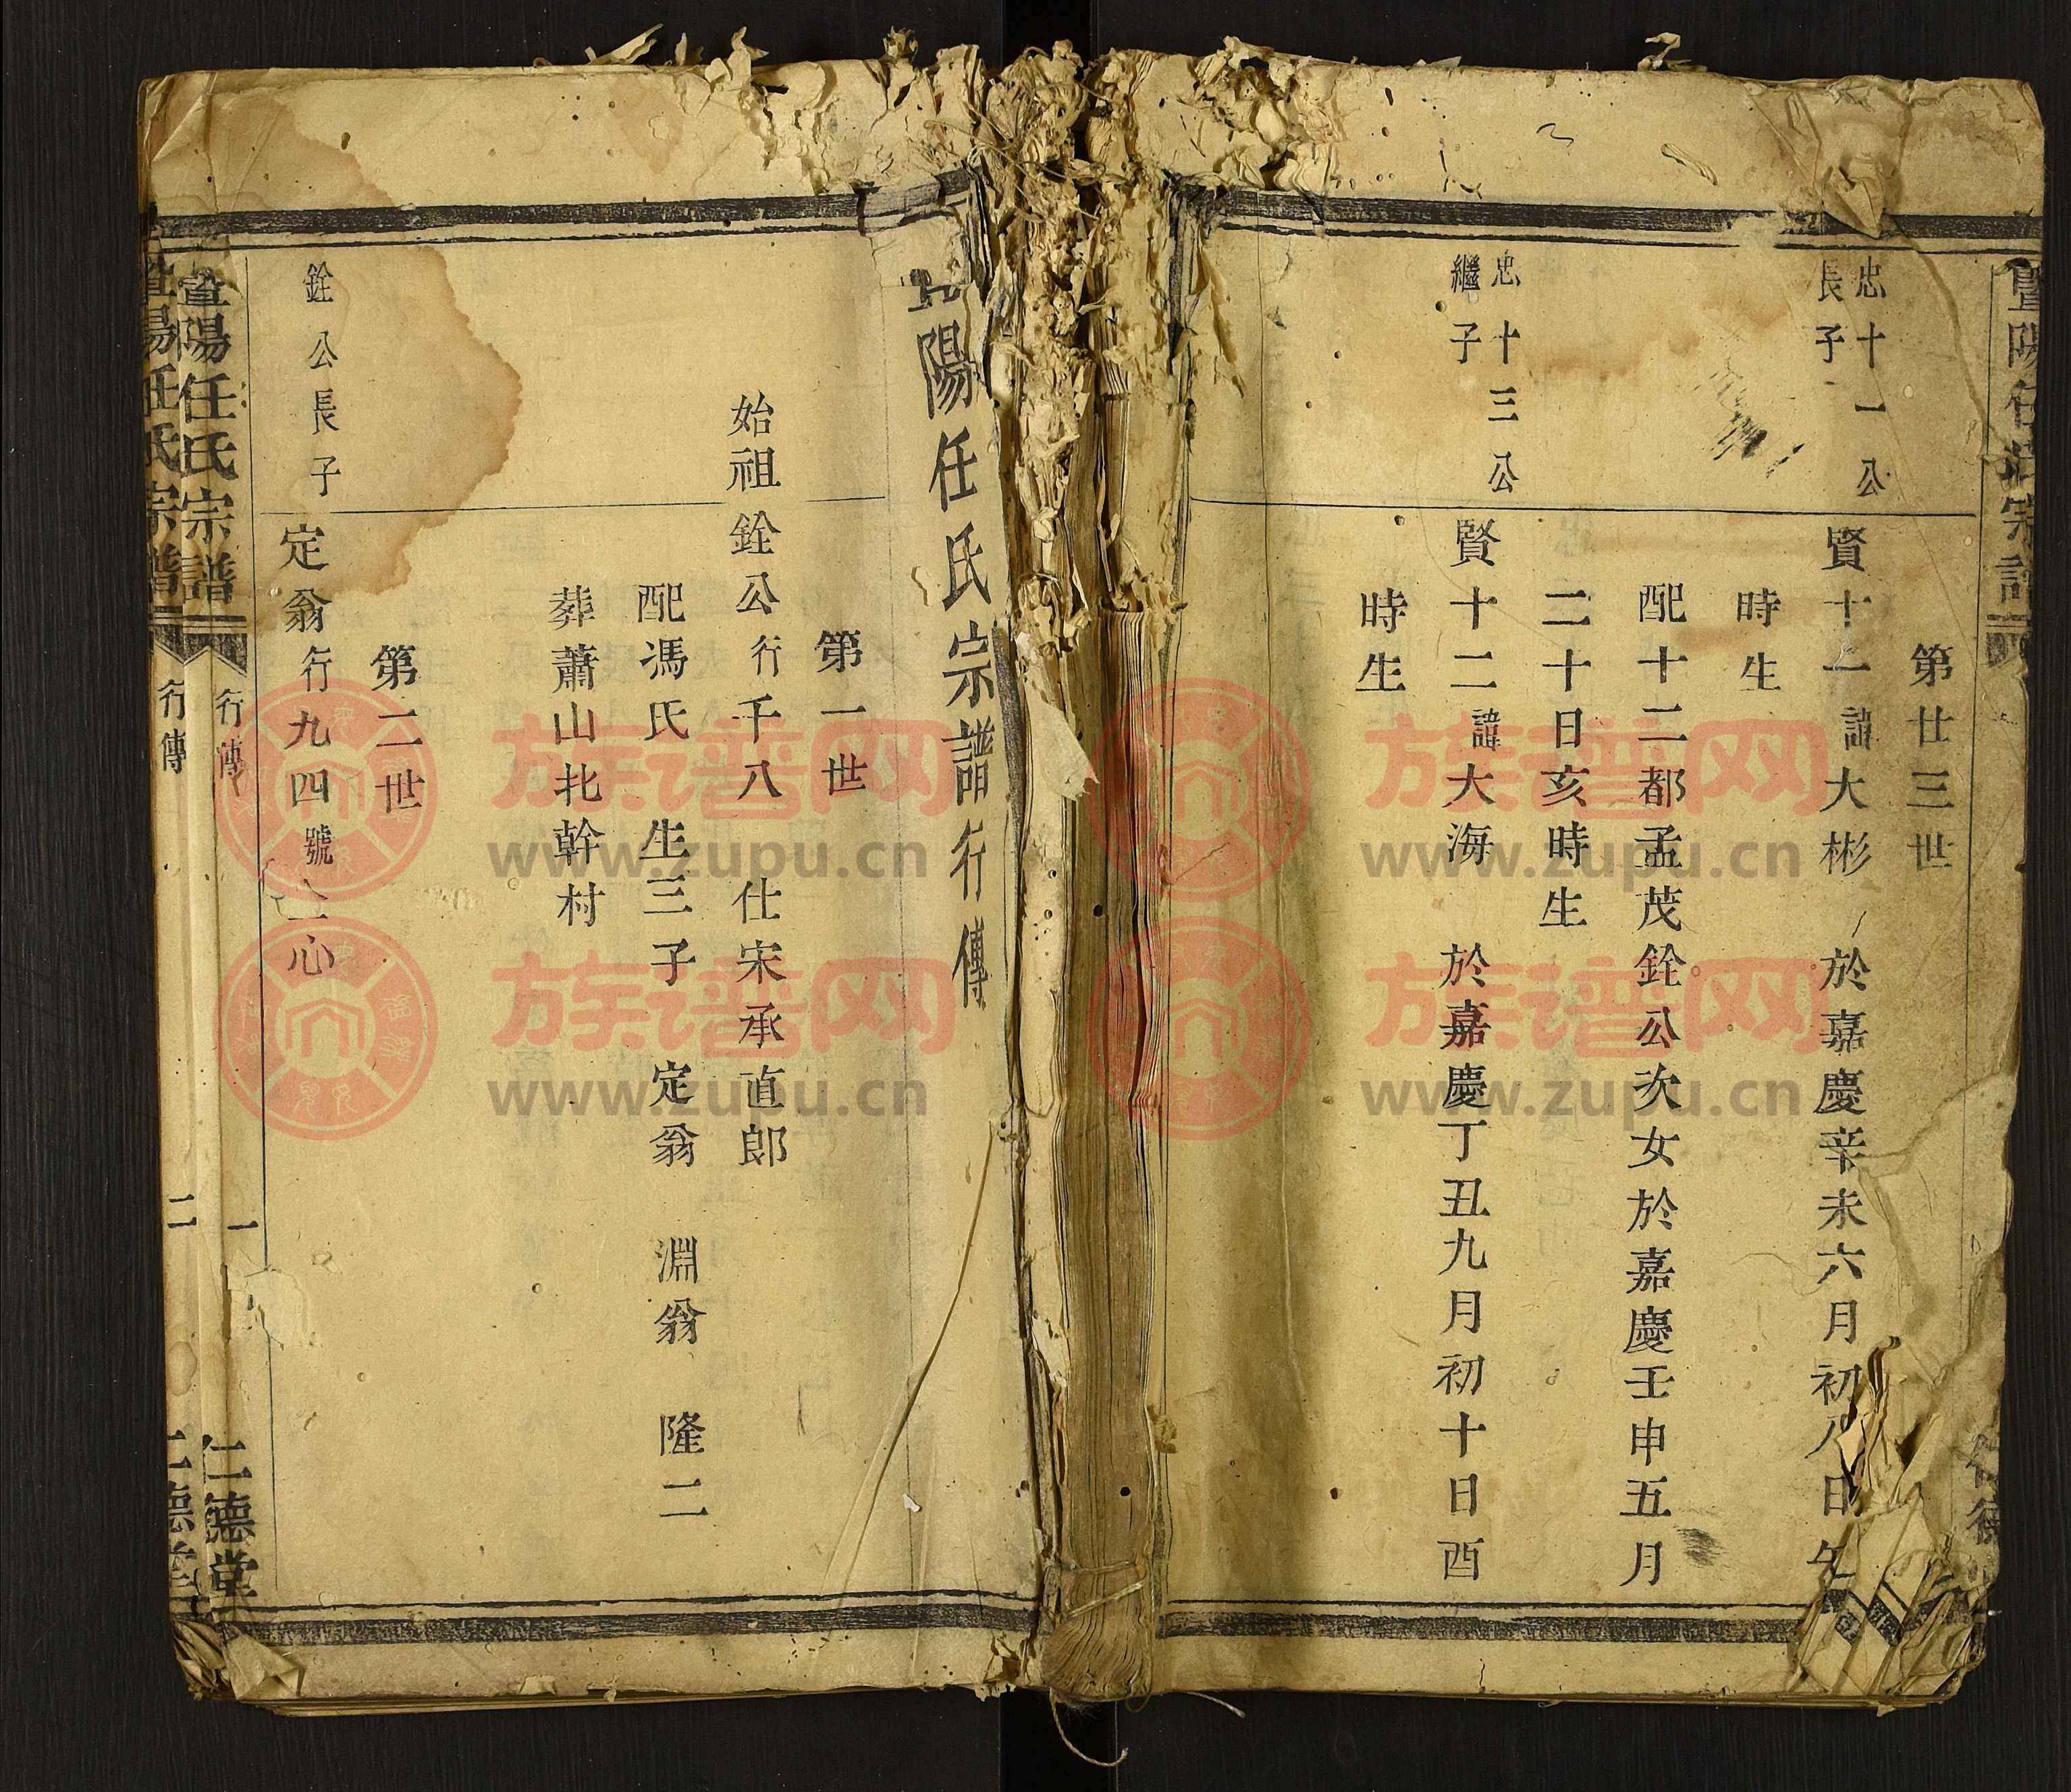 暨陽任氏宗譜
第廿三世
忠十一公
長子
賢十一諱大彬 於嘉慶辛未六月初八日午
時生
配十二都孟茂銓公次女於嘉慶壬申五月
二十日亥時生
忠十三公
繼子
賢十二諱大海 於嘉慶丁丑九月初十日酉
時生
陽任氏宗譜行傳
第一世
始祖銓公行千八 仕宋承直郎
配馮氏 生三子 定翁 淵翁 隆二
葬蕭山北幹村
第二世
銓公長子
定翁行九四號心
暨陽任氏宗譜 行傳 一 仁德堂
暨陽任氏宗譜 行傳 二 仁德堂
族谱网
www.zupu.cn
族谱网
www.zupu.cn
族谱网
www.zupu.cn
族谱网
www.zupu.cn